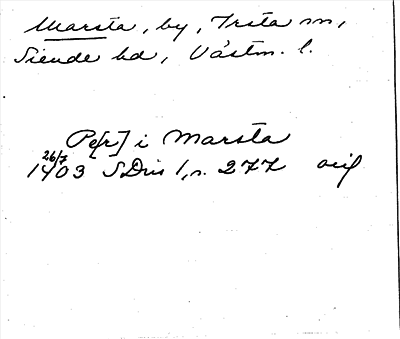 Marsta, by, Irsta sn,
Siende hd, Västm. l.
Pe[r] i Marsta
26/7
1403 SDns 1, n. 277 orig